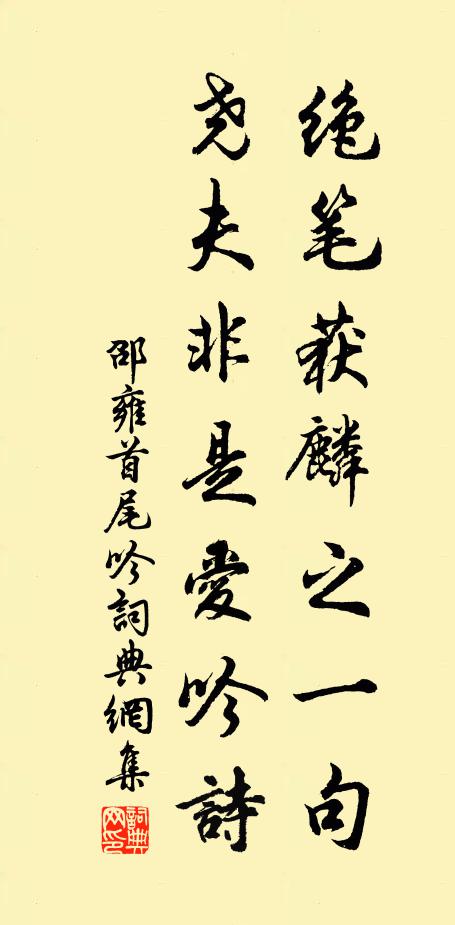 绝笔获麟之一句
尧夫非是爱吟詩
邵雍首尾吟詞典網集
詞典网印